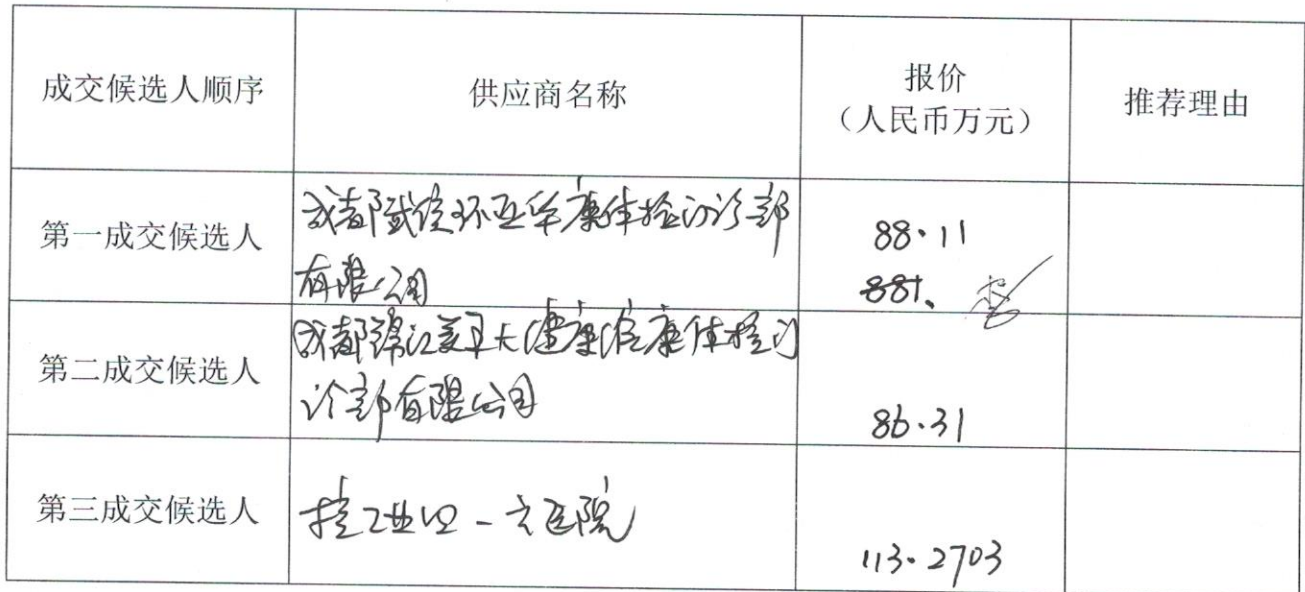 成交候选人顺序
供应商名称
报价
（人民币万元）
推荐理由
第一成交候选人
成都武侯环亚华康体检门诊部
有限公司
88.11
881.
第二成交候选人
成都锦江美年大健康健康体检门
诊部有限公司
86.31
第三成交候选人
核工业四一六医院
113.2703